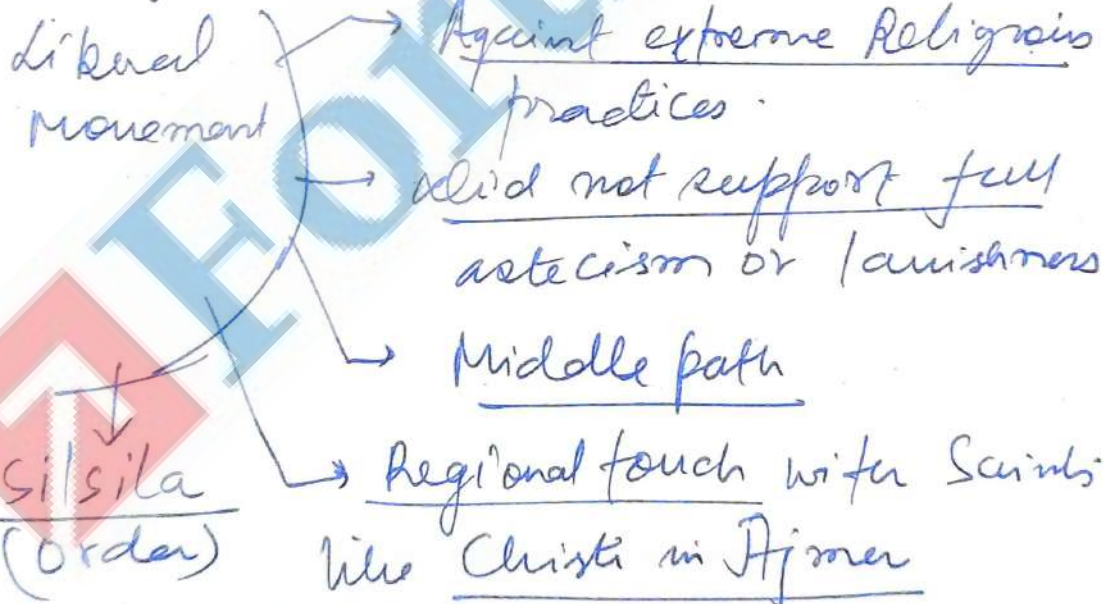 Liberal
Movement
Against extreme Religious
practices.
did not support full
astecism or lavishness
Middle path
Regional touch with Saints
like Chisti in Ajmer
Silsila
(Order)